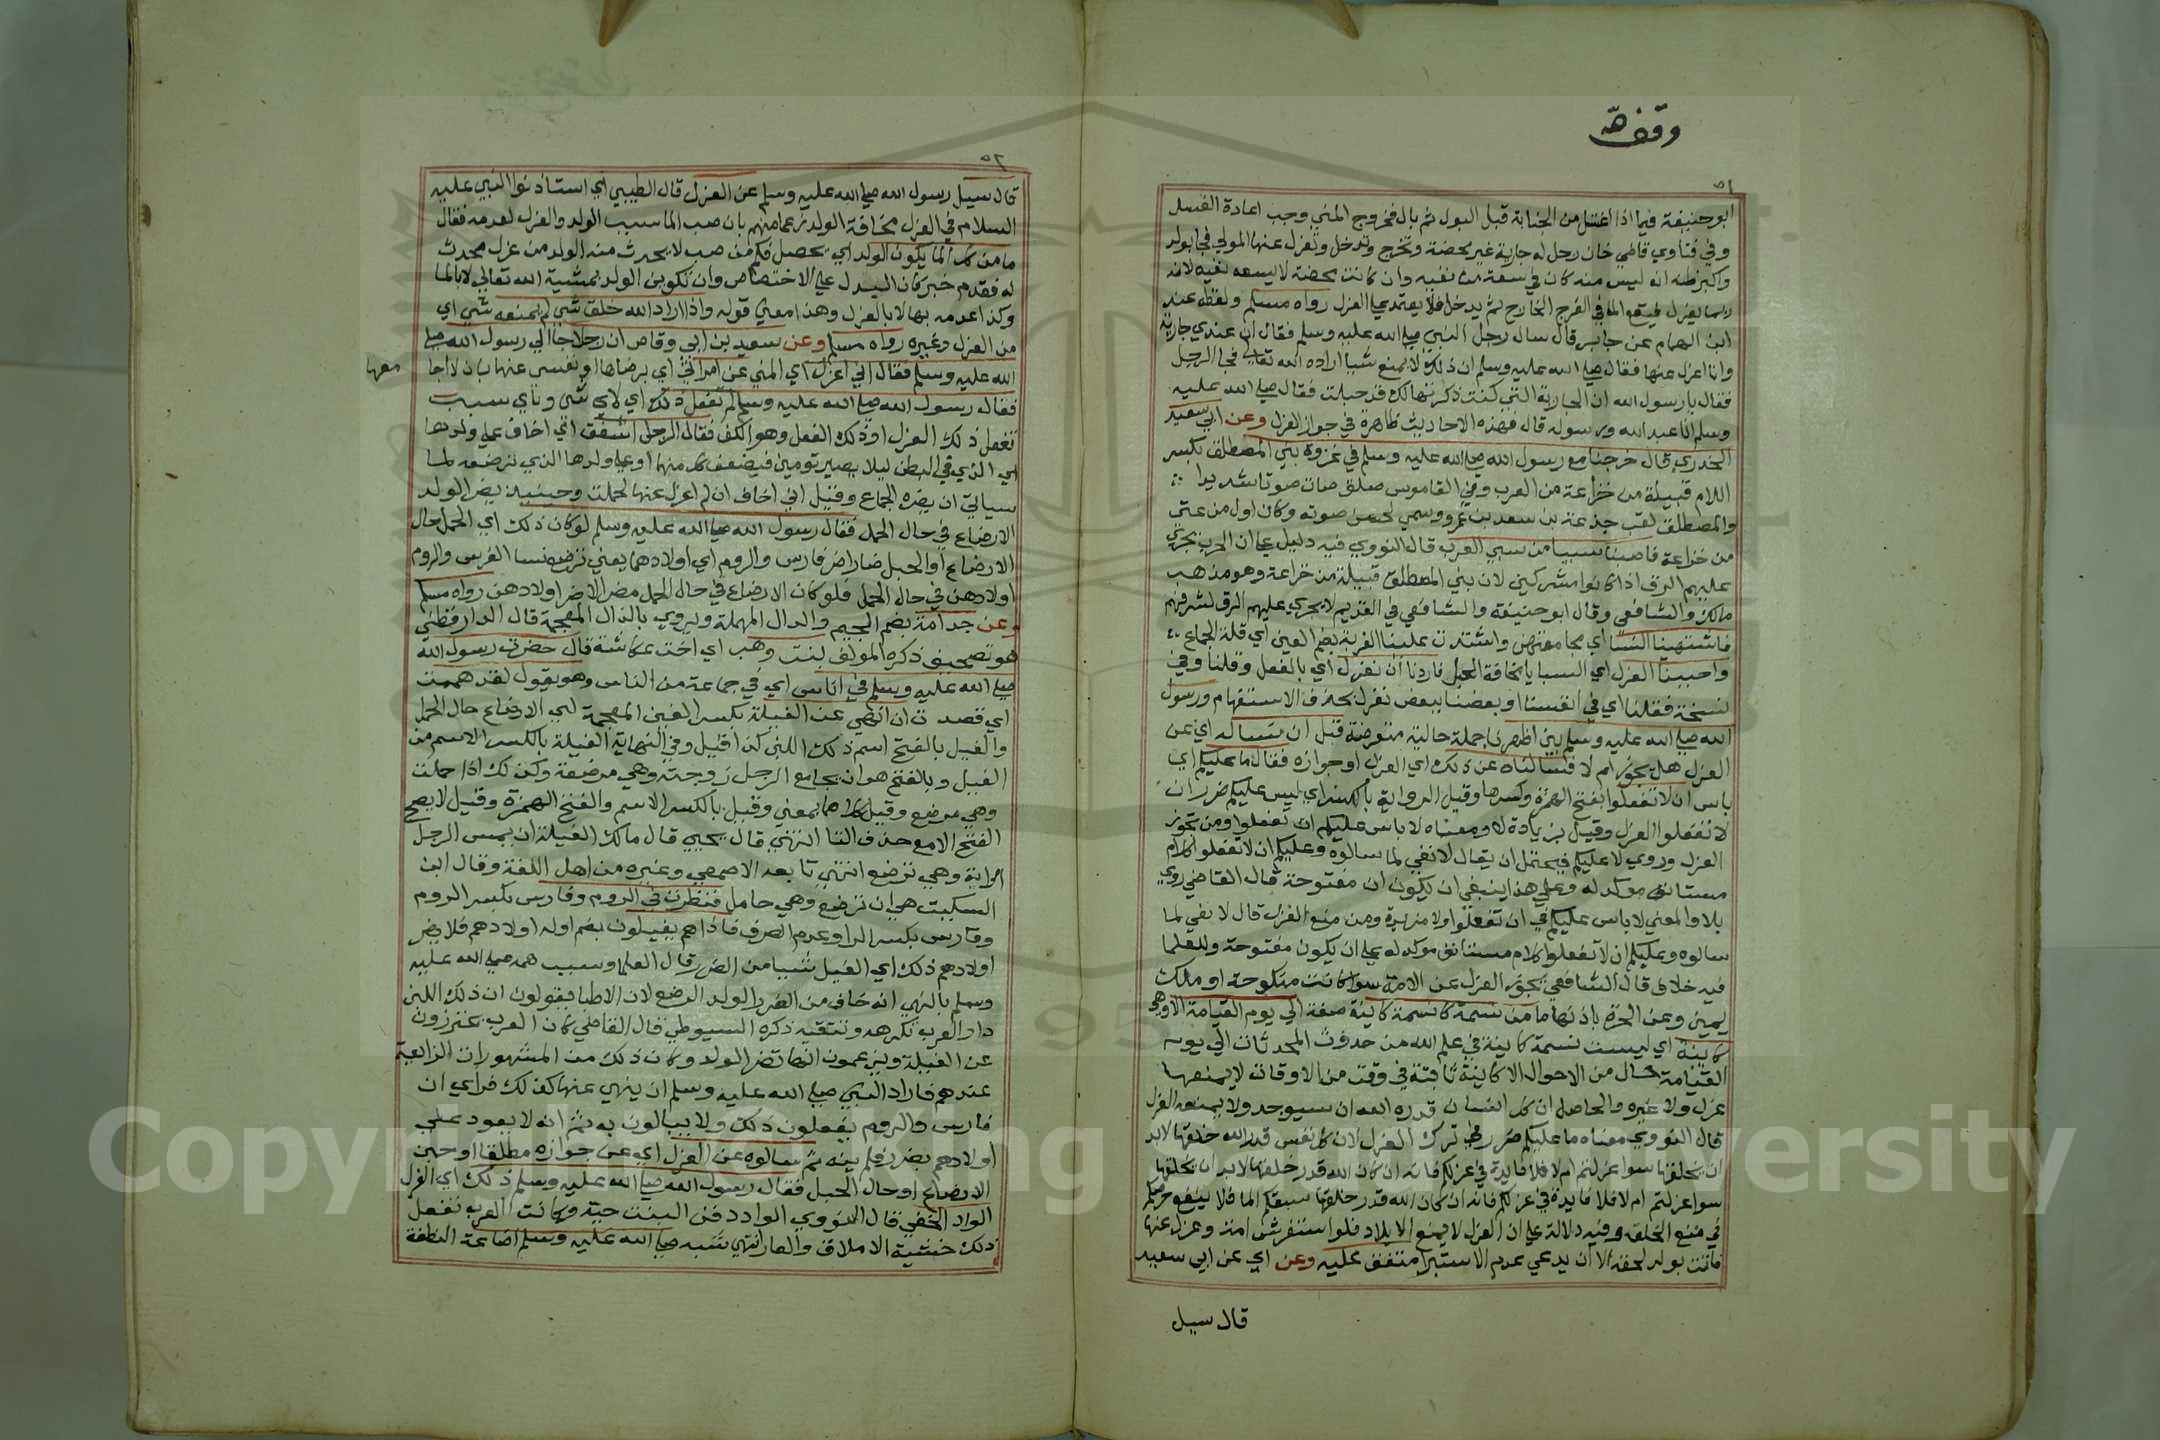 وقف لله
٥١
ابو حنيفة فيما اذا اغتسل من الجنابة قبل البول ثم بال فخروج المني وجب اعادة الغسل
وفي فتاوي قاضي خان رجل له جارية غير محصنة وتخرج وتدخل ويعزل عنها المولي فجا بولد
واكبر ظنه انه ليس منه كان في سعة من نفيه وان كانت محصنة لا يسعه نفيه لانه
ربما يعزل فيقع الما في الفرج الخارج ثم يدخل فلا يعتمد علي العزل رواه مسلم ولفظه عند
ابن الهمام عن جابر قال سال رجل النبي صلي الله عليه وسلم فقال ان عندي جارية
وانا اعزل عنها فقال صلي الله عليه وسلم ان ذلك لا يمنع شيا اراده الله تعالي فجا الرجل
فقال يا رسول الله ان الجارية التي كنت ذكرتها لك قد حبلت فقال صلي الله عليه
وسلم انا عبد الله ورسوله قال فهذه الاحاديث ظاهرة في جواز العزل وعن ابي سعيد
الخدري قال خرجنا مع رسول الله صلي الله عليه وسلم في غزوة بني المصطلق بكسر
اللام قبيلة من خزاعة من العرب وفي القاموس صلق صات صوتا شديدا
والمصطلق لقب جذيمة بن سعد بن عمرو وسمي لحسن صوته وكان اول من غني
من خزاعة فاصبنا سبيا من سبي العرب قال النووي فيه دليل علي ان العرب يجري
عليهم الرق اذا كانوا مشركين لان بني المصطلق قبيلة من خزاعة وهو مذهب
مالك والشافعي وقال ابو حنيفة والشافعي في القديم لا يجري عليهم الرق لشرفهم
فاشتهينا النسا اي مجامعتهن واشتدت علينا العزبة بضم العين اي قلة الجماع
واحببنا العزل اي السبايا مخافة الحبل فاردنا ان نعزل اي بالفعل وقلنا وفي
نسخة فقلنا اي في انفسنا او بعضنا ببعض نعزل بحذف الاستفهام ورسول
الله صلي الله عليه وسلم بين اظهرنا جملة حالية معترضة قبل ان نساله اي عن
العزل هل يجوز ام لا فسالناه عن ذلك اي العزل او جوازه فقال ما عليكم اي
باس ان لا تفعلوا بفتح الهمزة وكسرها وقيل الرواية بالكسر اي ليس عليكم ضرر ان
لا تفعلوا العزل وقيل بزيادة لا ومعناه لا باس عليكم ان تفعلوا ومن تجوز
العزل وروي لا عليكم فيحتمل ان يقال لا نفي لما سالوه وعليكم ان لا تفعلوا كلام
مستانف موكد له وعلي هذا ينبغي ان يكون ان مفتوحة قال القاضي روي
بلا والمعني لا باس عليكم في ان تفعلوا ولا مزيدة ومن منع العزل قال لا نفي لما
سالوه وعليكم ان لا تفعلوا كلام مستانف موكد له علي ان يكون مفتوحة وللعلما
فيه خلاف قال الشافعي يجوز العزل عن الامة سوا كانت منكوحة او ملك
يمين وعن الحرة باذنها ما من نسمة كاينة صفة الي يوم القيامة الا وهي
كاينة اي ليست نسمة كاينة في علم الله من حدوث المحدثات الي يوم
القيامة بحال من الاحوال الا كاينة ثابتة في وقت من الاوقات لا يمنعها
عزل ولا غيره والحاصل ان كل انسان قدره الله ان سيوجد ولا يمنعه العزل
قال النووي معناه ما عليكم ضرر في ترك العزل لان كل نفس قدر الله خلقها لا بد
ان يخلقها سوا عزلتم ام لا فلا فايدة في عزلكم فانه ان كان الله قدر خلقها لا بد ان يخلقها
سوا عزلتم ام لا فلا فايدة في عزلكم فانه ان كان الله قدر خلقها سبقكم الما فلا ينفع حرصكم
في منع الخلق وفيه دلالة علي ان العزل لا يمنع الايلاد فلو استفرش امة وعزل عنها
فاتت بولد لحقه الا ان يدعي عدم الاستبرا متفق عليه وعن اي عن ابي سعيد
قال سيل
٥٢
قال سيل رسول الله صلي الله عليه وسلم عن العزل قال الطيبي اي استاذنوا النبي عليه
السلام في العزل مخافة الولد زعما منهم بان صب الما سبب الولد والعزل لعدمه فقال
ما من كل الما يكون الولد اي يحصل فكم من صب لا يحدث منه الولد ومن عزل يحدث
له فقدم خبر كان ليدل علي الاختصاص وان تكوين الولد بمشية الله تعالي لا بالما
وكذا عدمه بها لا بالعزل وهذا معني قوله واذا اراد الله خلق شي لم يمنعه شي اي
من العزل وغيره رواه مسلم وعن سعيد بن ابي وقاص ان رجلا جا الي رسول الله صلي
الله عليه وسلم فقال اني اعزل اي المني عن امراتي اي برضاها او نفسي عنها بان لا اجا
معها
فقال رسول الله صلي الله عليه وسلم لم تفعل ذلك اي لاي شي وباي سبب
تفعل ذلك العزل او ذلك الفعل وهو الكف فقال الرجل اشفق اي اخاف علي ولدها
اي الذي في البطن ليلا يصير تومين فيضعف كل منهما او علي ولدها الذي ترضعه لما
سياتي ان يضره الجماع وقيل اني اخاف ان لم اعزل عنها لحملت وحينيذ يضر الولد
الارضاع في حال الحمل فقال رسول الله صلي الله عليه وسلم لو كان ذلك اي الحمل حال
الارضاع او الحبل ضارا ضر فارس والروم اي اولادهما يعني ترضع نسا الفرس والروم
اولادهن في حال الحمل فلو كان الارضاع في حال الحمل مضرا لاضر اولادهن رواه مسلم
وعن جدامة بضم الجيم والدال المهملة ويروي بالذال المعجمة قال الدارقطني
هو تصحيف ذكره المولف بنت وهب اي اخت عكاشة قال حضرت رسول الله
صلي الله عليه وسلم في اناس اي في جماعة من الناس وهو يقول لقد هممت
اي قصدت ان انهي عن الغيلة بكسر الغين المعجمة اي الارضاع حال الحمل
والغيل بالفتح اسم ذلك اللبن كذا قيل وفي النهاية الغيلة بالكسر الاسم من
الغيل وبالفتح هو ان يجامع الرجل زوجته وهي مرضعة وكذلك اذا حملت
وهي مرضع وقيل كلاهما بمعني وقيل بالكسر الاسم والفتح المرة وقيل لا يصح
الفتح الا مع حذف التا انتهي قال يحيي قال مالك الغيلة ان يمس الرجل
امراته وهي ترضع انتهي تابعه الاصمعي وغيره من اهل اللغة وقال ابن
السكيت هي ان ترضع وهي حامل فنظرت في الروم وفارس بكسر الروم
وفارس بكسر الرا وعدم الصرف فاذا هم يغيلون بضم اوله اولادهم فلا يضر
اولادهم ذلك اي الغيل شييا من الضرر قال العلما وسبب همه صلي الله عليه
وسلم بالنهي انه خاف من الضرر الولد الرضيع لان الاطبا يقولون ان ذلك اللبن
دا والعرب تكرهه وتتقيه ذكره السيوطي قال القاضي كان العرب يحترزون
عن الغيلة ويزعمون انها تضر الولد وكان ذلك من المشهورات الذايعة
عندهم فاراد النبي صلي الله عليه وسلم ان ينهي عنها كذلك فراي ان
فارس والروم يفعلون ذلك ولا يبالون به ثم انه لا يعود علي
اولادهم بضرر فلم ينه ثم سالوه عن العزل اي عن جوازه مطلقا او حين
الارضاع او حال الحبل فقال رسول الله صلي الله عليه وسلم ذلك اي العزل
الواد الخفي قال النووي الواد دفن البنت حية وكانت العرب تفعل
ذلك خشية الاملاق والعار انتهي شبه صلي الله عليه وسلم اضاعة النطفة
Copyright © King Saud University
1957